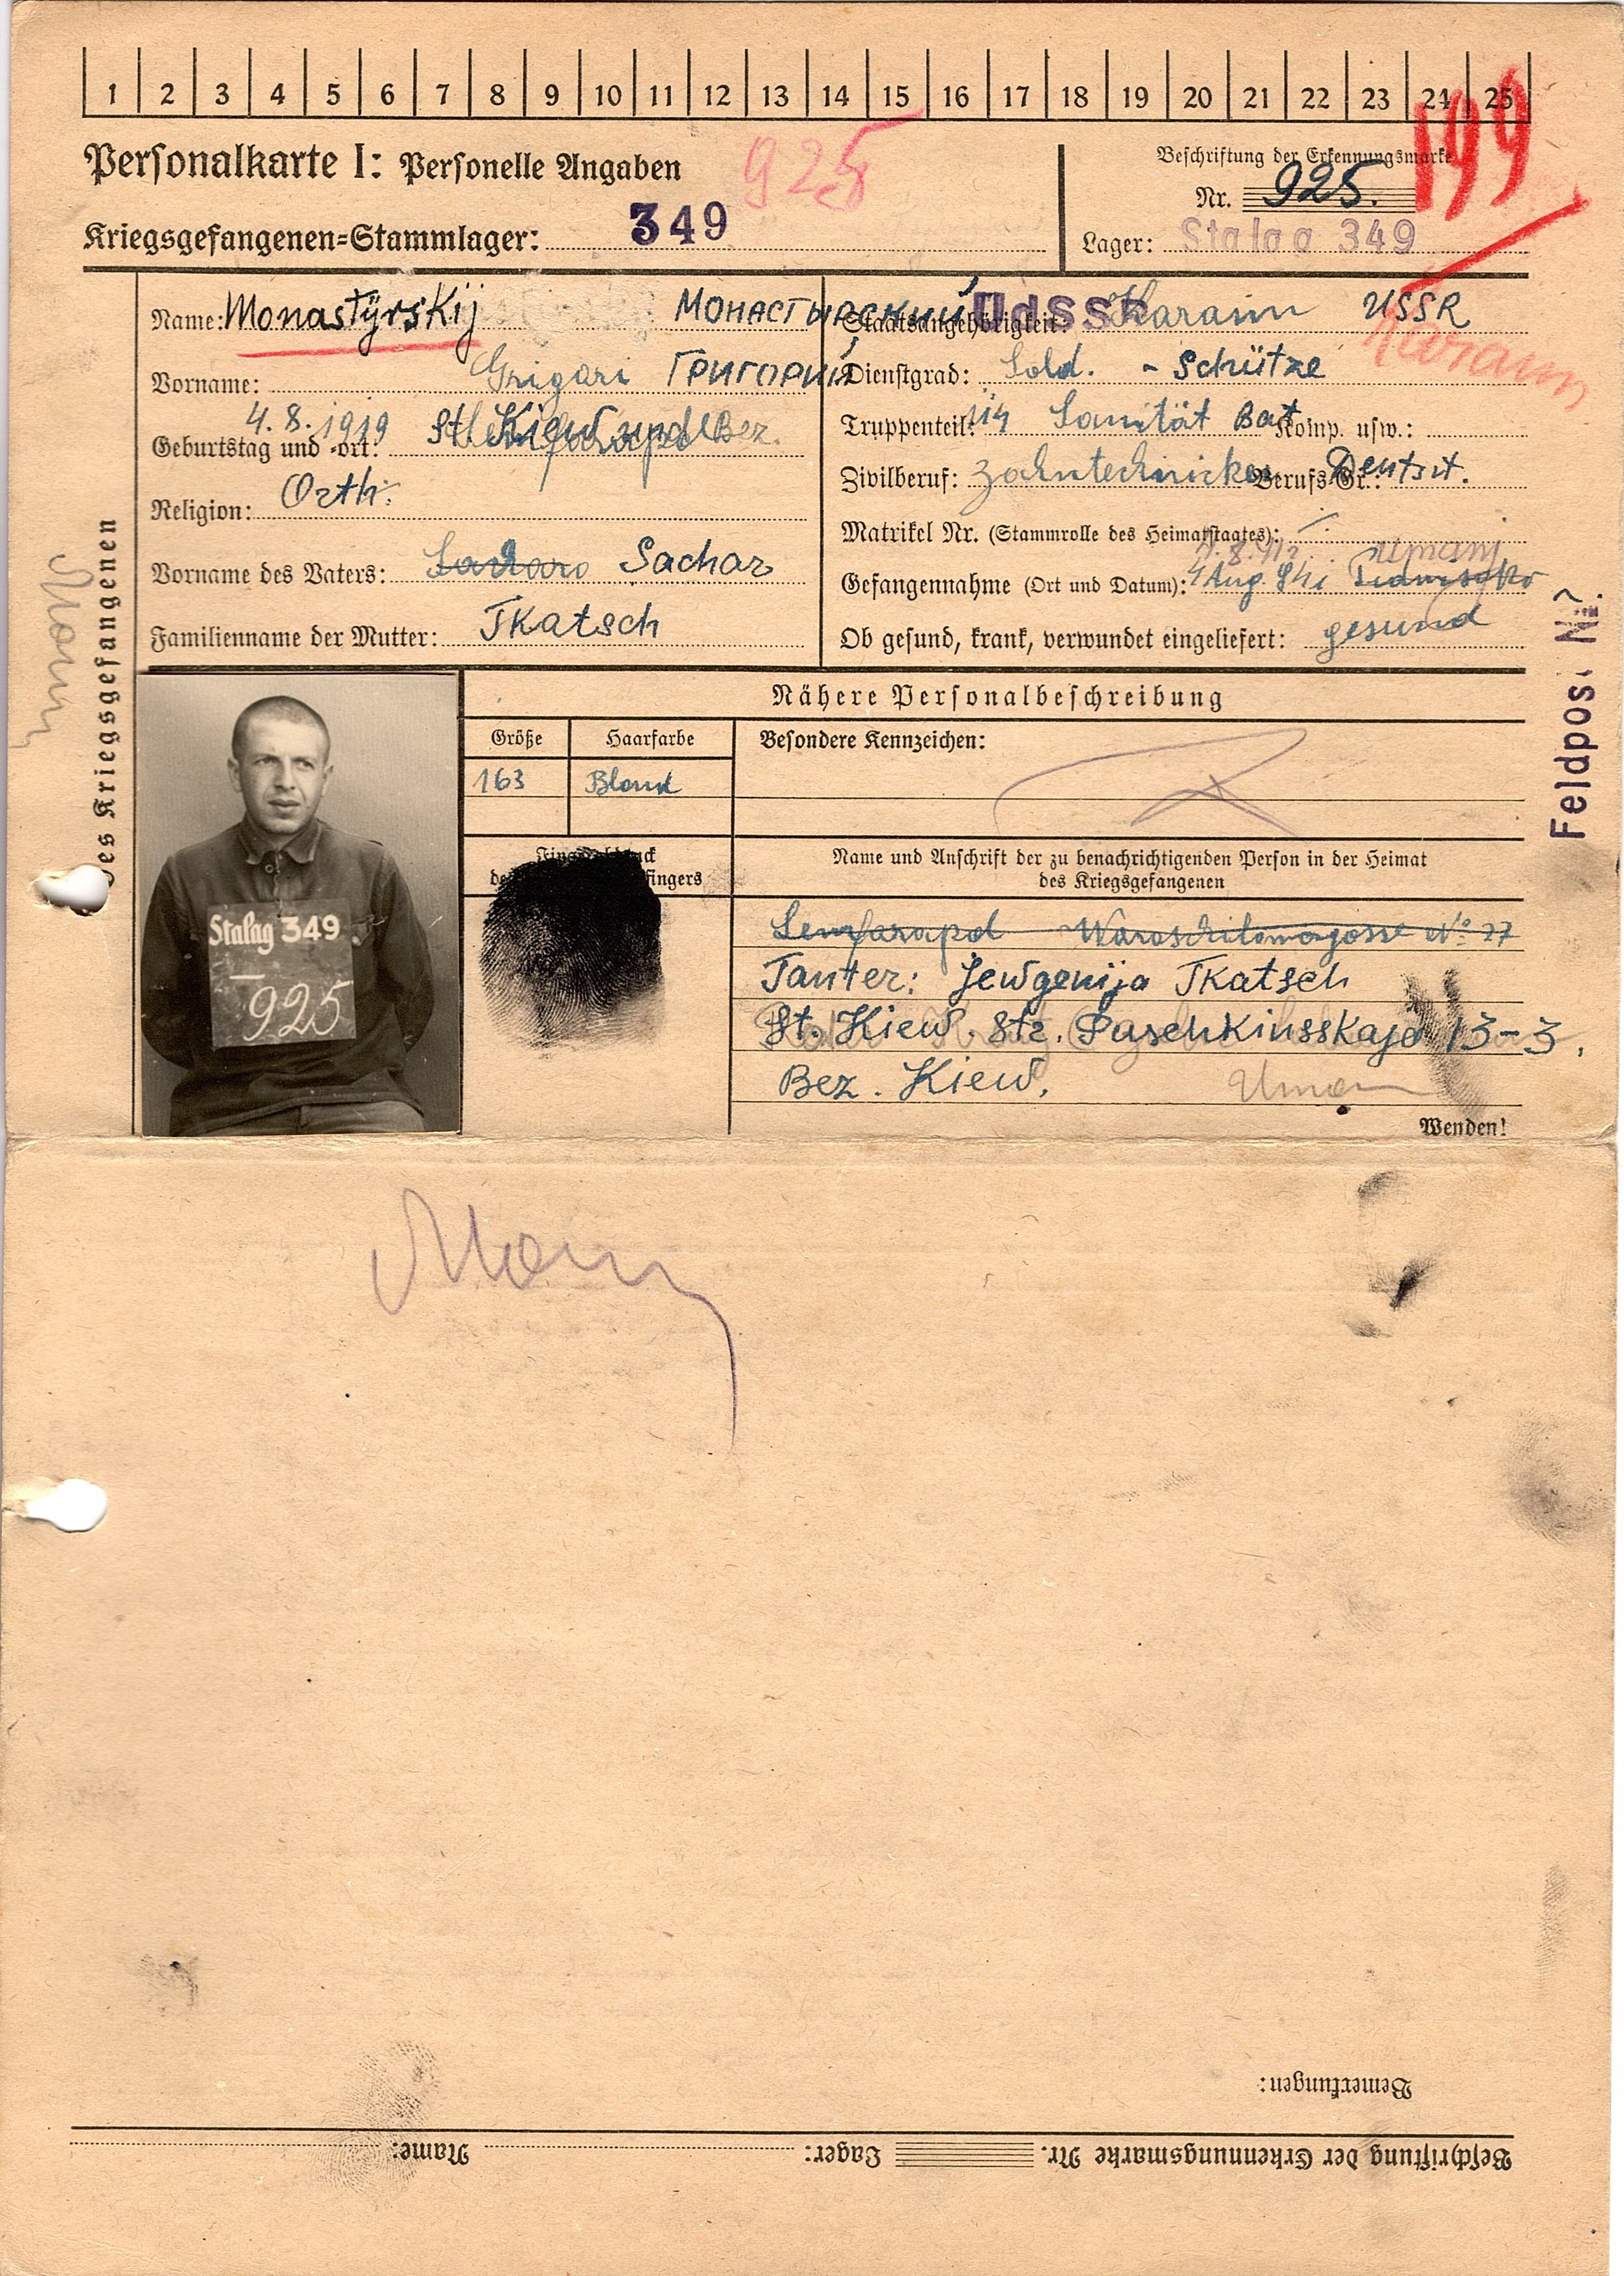 1 2 3 4 5 6 7 8 9 10 11 12 13 14 15 16 17 18 19 20 21 22 23 24 25
199
Personalkarte I: Personelle Angaben
925
Beschriftung der Erkennungsmarke
Nr. 925.
Kriegsgefangenen=Stammlager: 349
Lager: Stalag 349
des Kriegsgefangenen
Name: Monastÿrskij МОНАСТЫРСКИЙ
Vorname: Grigori ГРИГОРИЙ
4.8.1919 St. Kiew und Bez.
Geburtstag und -ort:
Religion: Orth.
Vorname des Vaters: Sachar
Familienname der Mutter: Tkatsch
UdSSR
Staatsangehörigkeit: Karaim USSR
Karaim
Dienstgrad: Sold. - Schütze
Truppenteil: Sanität Bat Komp. usw.:
Zivilberuf: Zahntechnicker Berufs-Gr.:
Matrikel Nr. (Stammrolle des Heimatstaates):
Gefangennahme (Ort und Datum): 4 Aug.
Ob gesund, krank, verwundet eingeliefert: gesund
Feldpost Nr.
Nähere Personalbeschreibung
Größe Haarfarbe Besondere Kennzeichen:
163 Blond
fingers
Name und Anschrift der zu benachrichtigenden Person in der Heimat
des Kriegsgefangenen
Stalag 349
925
Tanter: Jewgenija Tkatsch
St. Kiew. Str. Puschkinsskaja 13-3.
Bez. Kiew.
Uman
Wenden!
Bemerkungen:
Beschriftung der Erkennungsmarke Nr. Lager: Name: